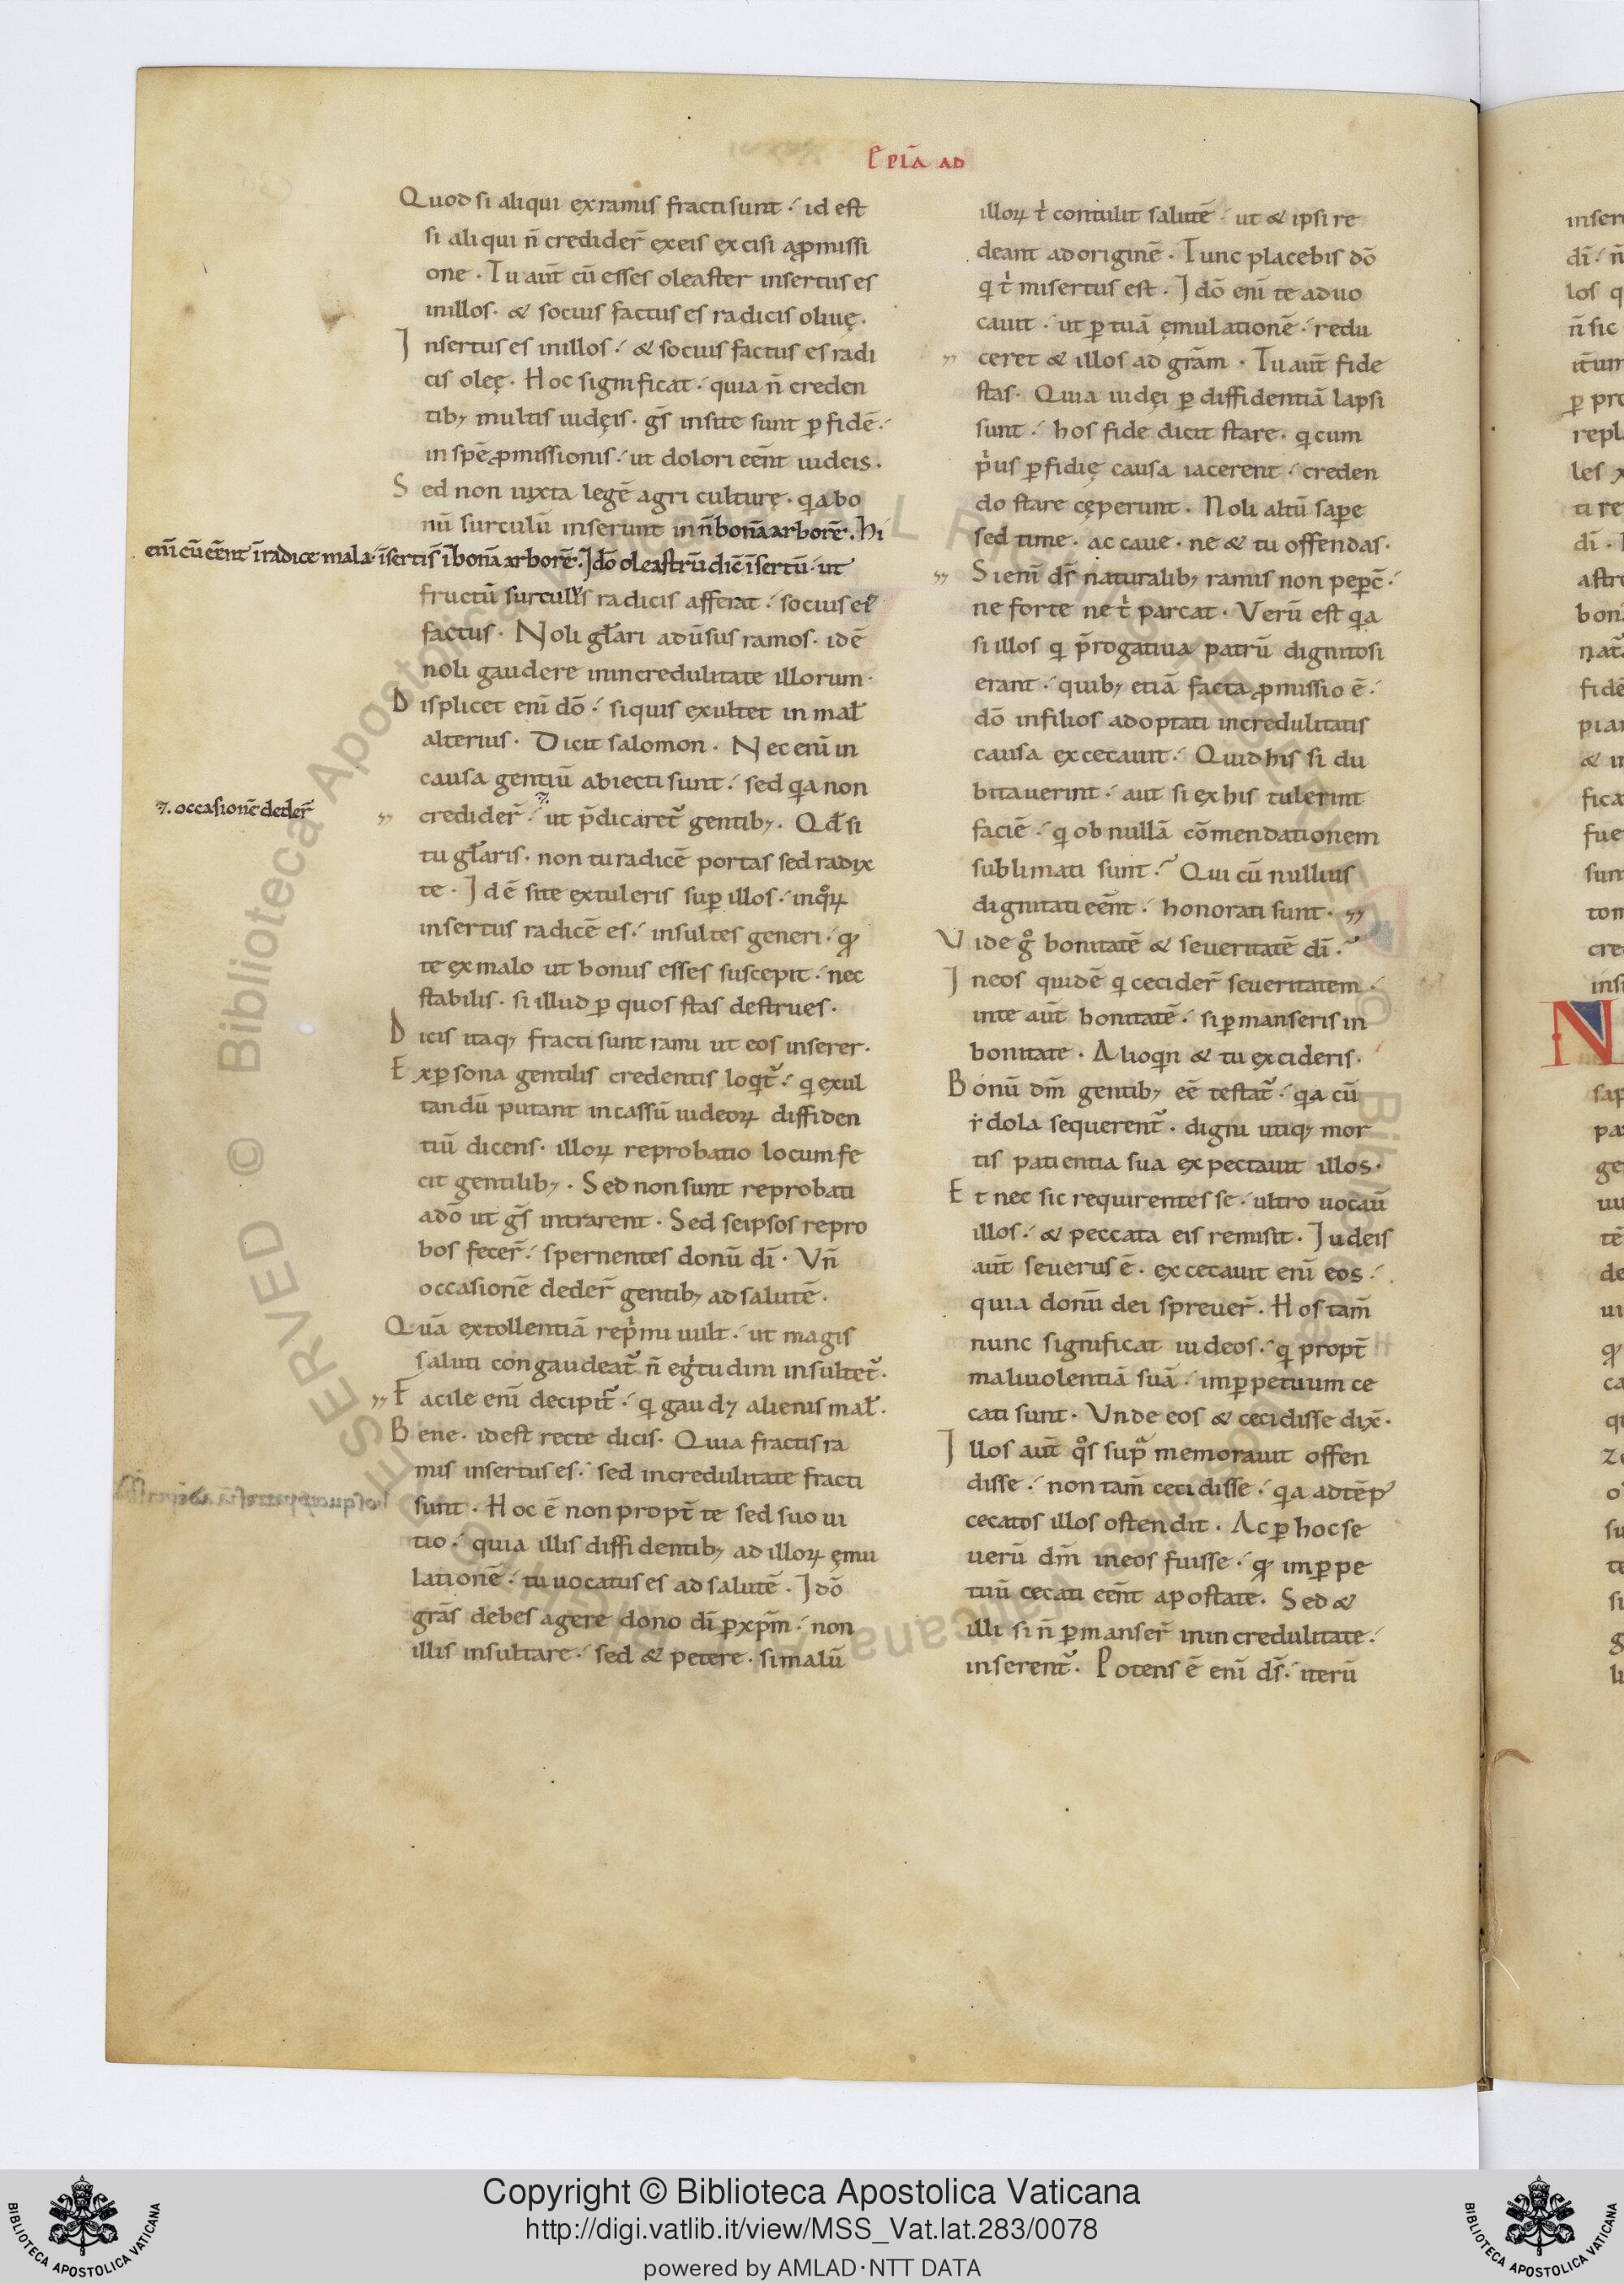 EPLA AD
Quod si aliqui ex ramis fracti sunt ⁖ id est
si aliqui n̄ credider̄ ex eis excisi a ꝓmissi
one · Tu aut̄ cū esses oleaster insertus es
in illos · & socius factus es radicis oliuę ·
Insertus es in illos ⁖ & socius factus es radi
cis oleę · Hoc significat ⁖ quia n̄ creden
tib; multis iudęis · gs̄ insite sunt ꝑ fidē ⁖
in spē ꝓmissionis ⁖ ut dolori eēnt iudeis ·
Sed non iuxta legē agri culturę · qa bo
nū surculū inserunt in n̄ bonā arborē · Hi
eni cū eēnt ī radice mala · īsertis ī bonā arborē · Idō oleastrū dic̄ īsertū · ut
fructū surculis radicis afferat ⁖ socius ei
factus · Noli gl̄ari aduͥsus ramos · idē
noli gaudere in incredulitate illorum ·
Displicet eni dō ⁖ si quis exultet in mal̄
alterius · Dicit salomon · Nec eni in
causa gentiū abiecti sunt ⁖ sed qa non
⁊ occasionē deder̄
credider̄ ⁖ ut p̄dicaret̄ gentib; · Qd̄ si
tu gl̄aris · non tu radicē portas sed radix
te · Idē si te extuleris suꝑ illos ⁖ in qͦꝝ
insertus radicē es ⁖ insultes generi ⁖ qͥ
te ex malo ut bonus esses suscepit ⁖ nec
stabilis · si illud ꝑ quos stas destrues ·
Dicis itaq; fracti sunt rami ut eos inserer ·
Ex ꝑsona gentilis credentis loqt̄ ⁖ q exul
tandū putant in cassū iudeoꝝ diffiden
tiū dicens · illoꝝ reprobatio locum fe
cit gentilib; · Sed non sunt reprobati
a dō ut gs̄ intrarent · Sed se ipsos repro
bos fecer̄ ⁖ spernentes donū di · Vn̄
occasionē deder̄ gentib; ad salutē ·
Quā extollentiā repͥmi uult ⁖ ut magis
saluti congaudeat̄ n̄ egͥtudini insultet̄ ·
Facile eni decipit̄ ⁖ q gaud; alienis mal̄ ·
Bene · id est recte dicis · Quia fractis ra
mis insertus es ⁖ sed incredulitate fracti
sunt · Hoc ē non propt̄ te sed suo ui
tio ⁖ quia illis diffidentib; ad illoꝝ ęmu
lationē ⁖ tu uocatus es ad salutē · Idō
grās debes agere dono di ꝑ xp̄m ⁖ non
illis insultare ⁖ sed & petere · si malū
illoꝝ tͥ contulit salutē ⁖ ut & ipsi re
deant ad originē · Tunc placebis dō
q tͥ misertus est · Idō eni te aduo
cauit ⁖ ut ꝑ tuā ęmulationē ⁖ redu
ceret & illos ad grām · Tu aut̄ fide
stas · Quia iudęi ꝑ diffidentiā lapsi
sunt ⁖ hos fide dicit stare · q cum
pͥus ꝑfidię causa iacerent ⁖ creden
do stare cęperunt · Noli altū saꝑe
sed time · ac caue · ne & tu offendas ·
Si eni ds̄ naturalib; ramis non peꝑc̄ ⁖
ne forte ne tͥ parcat · Verū est qa
si illos q p̄rogatiua patrū dignitosi
erant ⁖ quib; etiā facta ꝓmissio ē ⁖
dō in filios adoptati incredulitatis
causa excecauit ⁖ Quid his si du
bitauerint ⁖ aut si ex his tulerint
faciē ⁖ q ob nullā cōmendationem
sublimati sunt? Qui cū nullius
dignitati eēnt ⁖ honorati sunt ·
Vide gͦ bonitatē & seueritatē di ⁖
In eos quidē q cecider̄ seueritatem ⁖
in te aut̄ bonitatē ⁖ si ꝑmanseris in
bonitate · Alioqn & tu excideris ·
Bonū dm̄ gentib; eē testat̄ ⁖ qa cū
ydola sequerent̄ · digni utiq; mor
tis patientia sua expectauit illos ·
Et nec sic requirentes se ⁖ ultro uocaū
illos ⁖ & peccata eis remisit · Iudeis
aut̄ seuerus ē · excecauit eni eos ⁖
quia donū dei spreuer̄ · Hos tam̄
nunc significat iudeos ⁖ q propt̄
maliuolentiā suā ⁖ in ꝑpetuum ce
cati sunt · Vnde eos & cecidisse dix̄ ·
Illos aut̄ qͦs supͣ memorauit offen
disse ⁖ non tam̄ cecidisse ⁖ qa ad tēp
cecatos illos ostendit · Ac ꝑ hoc se
uerū dm̄ in eos fuisse ⁖ qͥ in ꝑpe
tuū cecati eēnt apostate · Sed &
illi si n̄ ꝑmanser̄ in incredulitate ⁖
inserent̄ · Potens ē eni ds̄ ⁖ iterū
N
Copyright © Biblioteca Apostolica Vaticana
http://digi.vatlib.it/view/MSS_Vat.lat.283/0078
powered by AMLAD·NTT DATA
BIBLIOTECA APOSTOLICA VATICANA
BIBLIOTECA APOSTOLICA VATICANA